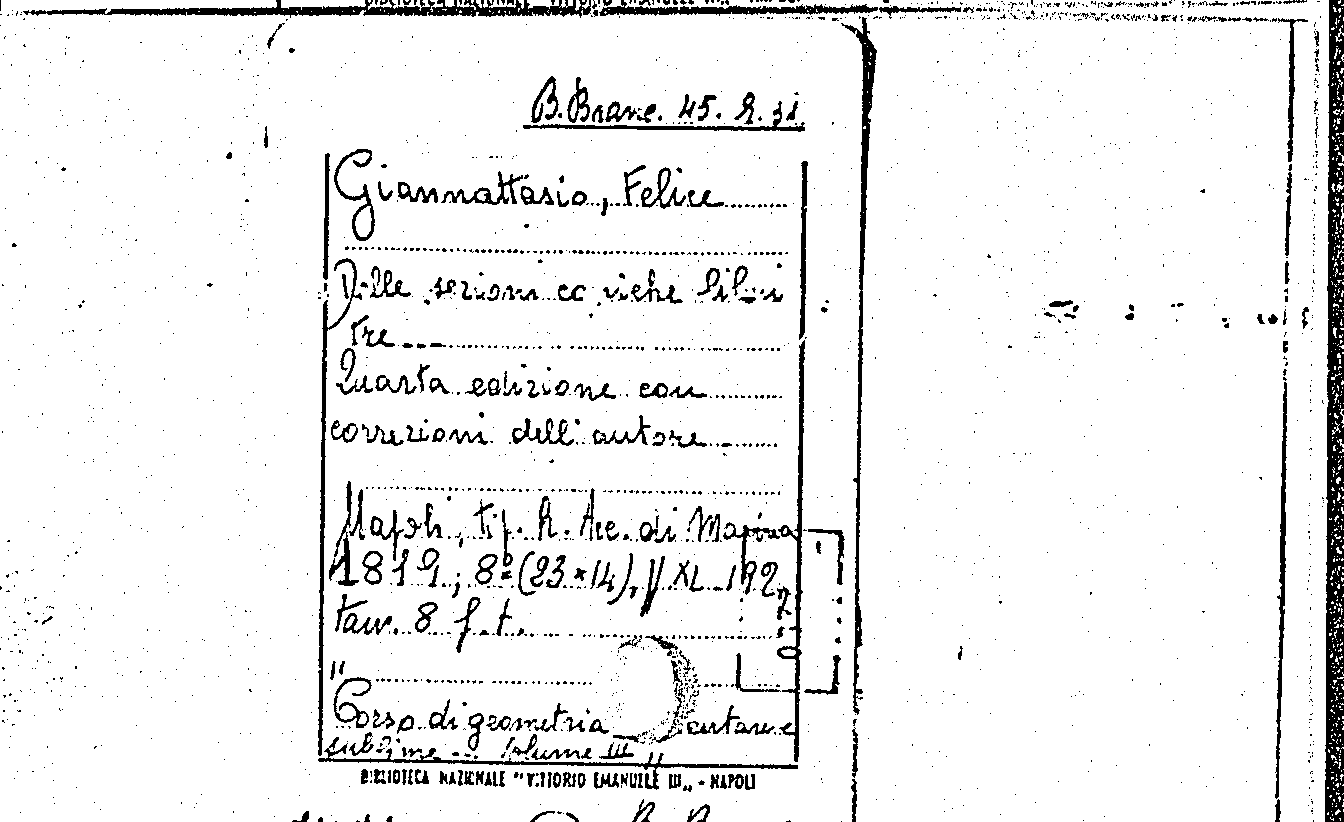 B. Branc. 45. E. 31.
Giannattasio, Felice
Delle sezioni coniche libri
tre ---
Quarta edizione con
correzioni dell'autore
Napoli, tip. R. Acc. di Marina
1819, 8º (23×14), pp XL-192,
tav. 8 f.t.
"Corso di geometria
sublime ... Volume III"
BIBLIOTECA NAZIONALE "VITTORIO EMANUELE III„ - NAPOLI